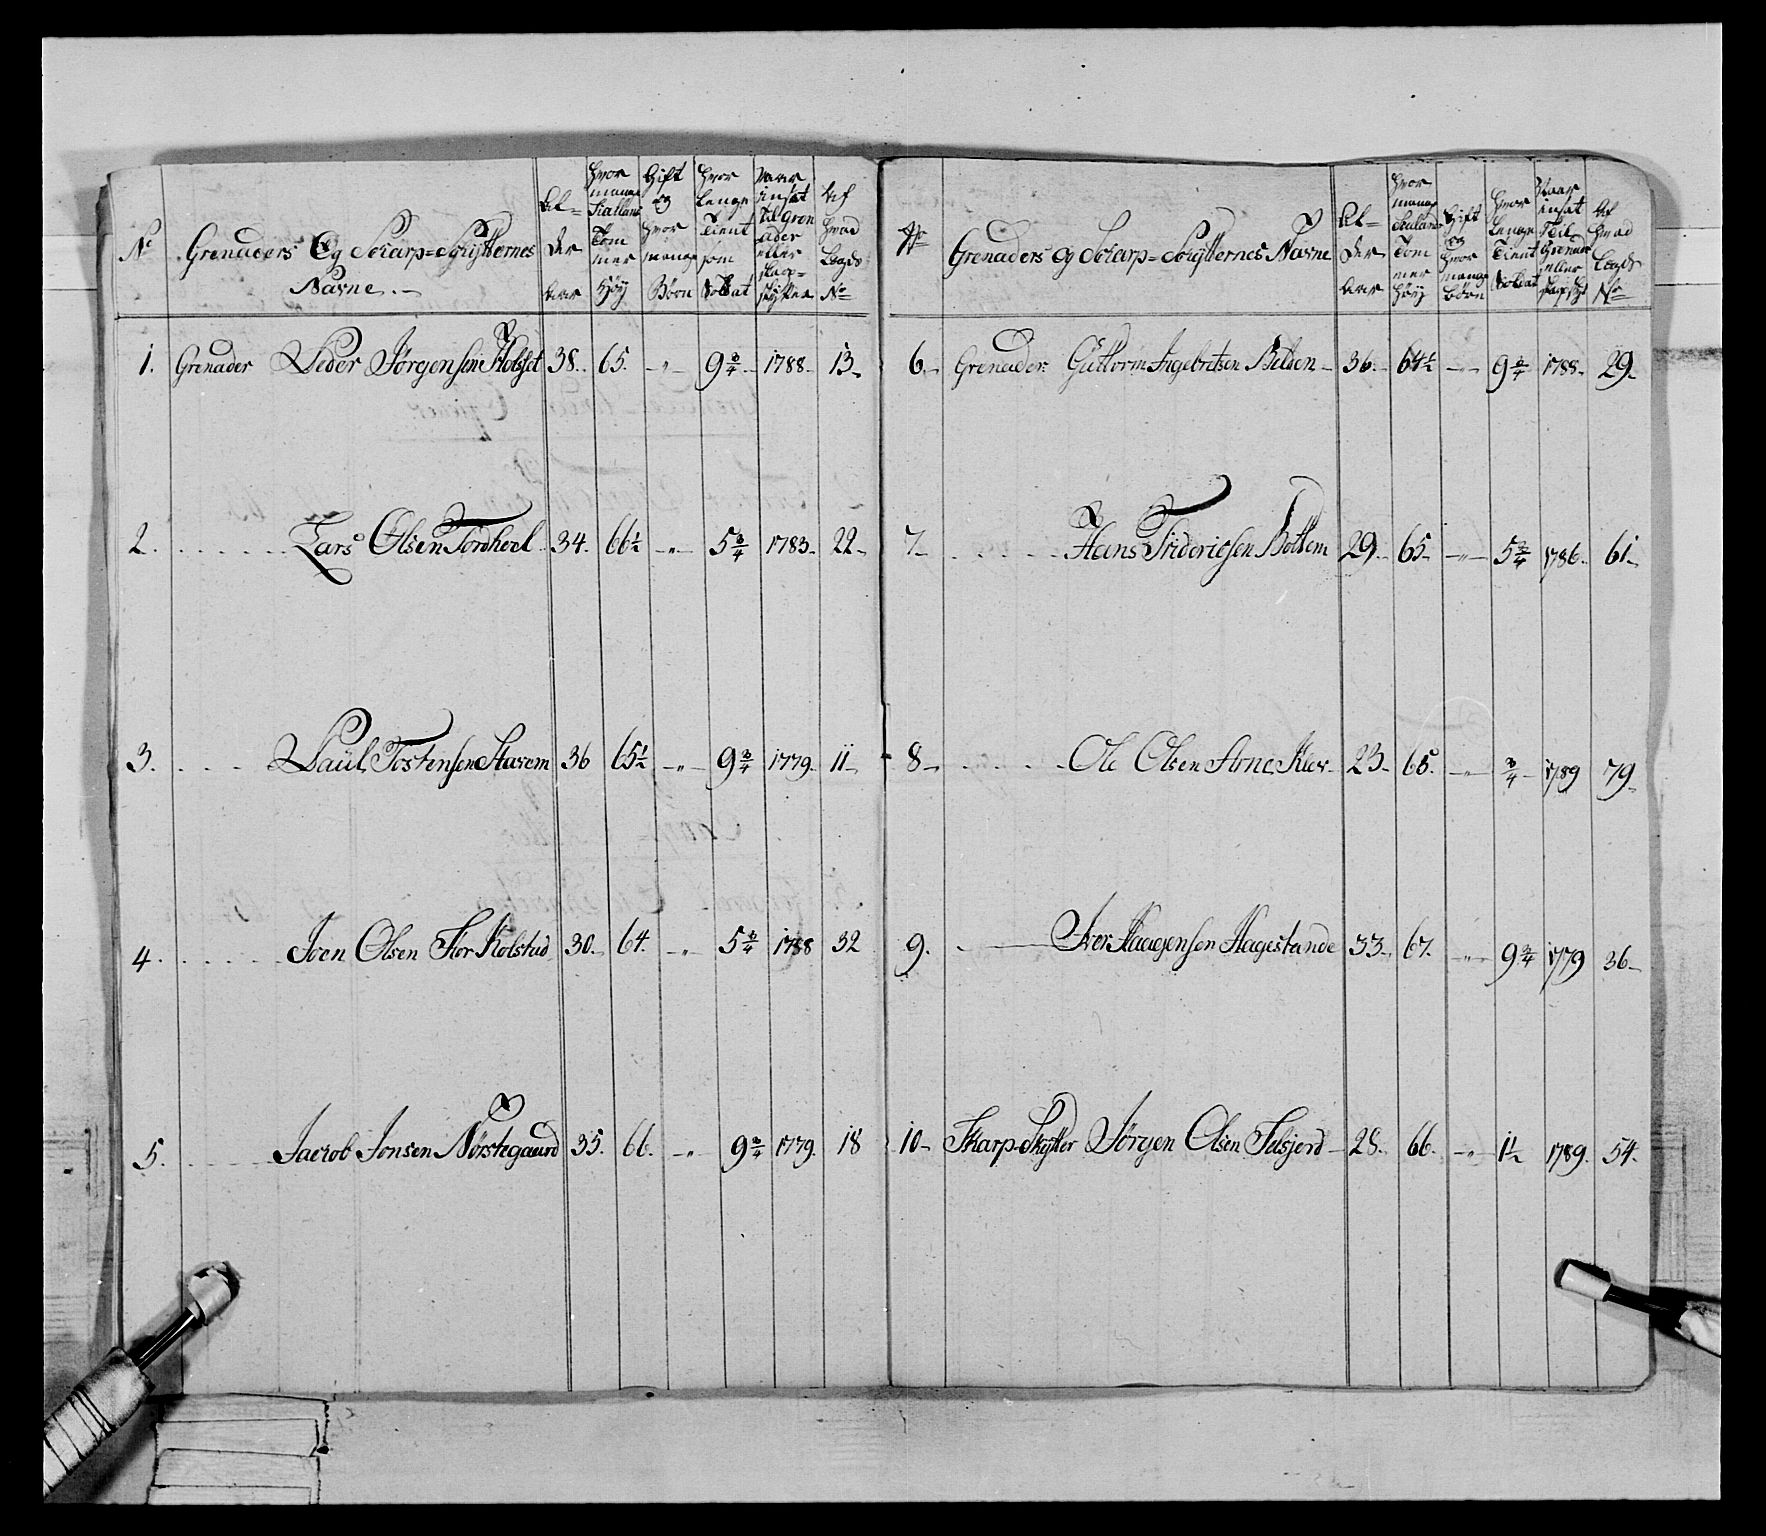 No
Grenaders Og Skarp=Skytternes
Navne.
Al=
der
Aar
Hvor
mange
Siællans
Tom
mer
Høy
Gift
og
Hvor
mange
Børn
Hvor
lenge
Tient
som
Soldat
Naar
insat
til Gren
ader
eller
skarp=
skytter
Af
Hvad
Lægds
No
1. Grenader Peder Jörgensen Kolset 38. 65. -"- 9 3/4 1788. 13
2. Lars Olsen Tordhoel 34. 66 1/2 -"- 5 3/4 1783. 22
3. Paul Tostensen Starem 36 65 1/2 -"- 9 3/4 1779. 11
4. Joen Olsen Flor Kolstad 30. 64. -"- 5 3/4 1788 32
5. Jacob Jonsen Nörstegaard 35. 66. -"- 9 3/4 1779. 18
No
Grenaders og Skarp=Skytternes Navne
Al=
der
Aar
Hvor
mange
Sællands
Tom
mer
Høy
Gift
og
Hvor
mange
Børn
Hvor
lenge
Tient
Soldat
Naar
insat
Til
Grenader
eller
Af
Hvad
Lægds
No
6. Grenader Guttorm Ingebretsen 36. 64 1/2 -"- 9 3/4 1788. 29
7 Hans Friderichsen Bottem 29. 65 -"- 5 3/4 1786. 61
8 Ole Olsen Arne Klev 23 65. -"- 3/4 1789 79
9. Iver Haagensen Hagestande 33 67. -"- 9 3/4 1779 36
10 Skarp-Skytter Jörgen Olsen Selsjord 28. 66. -"- 1 1/2 1789. 54.